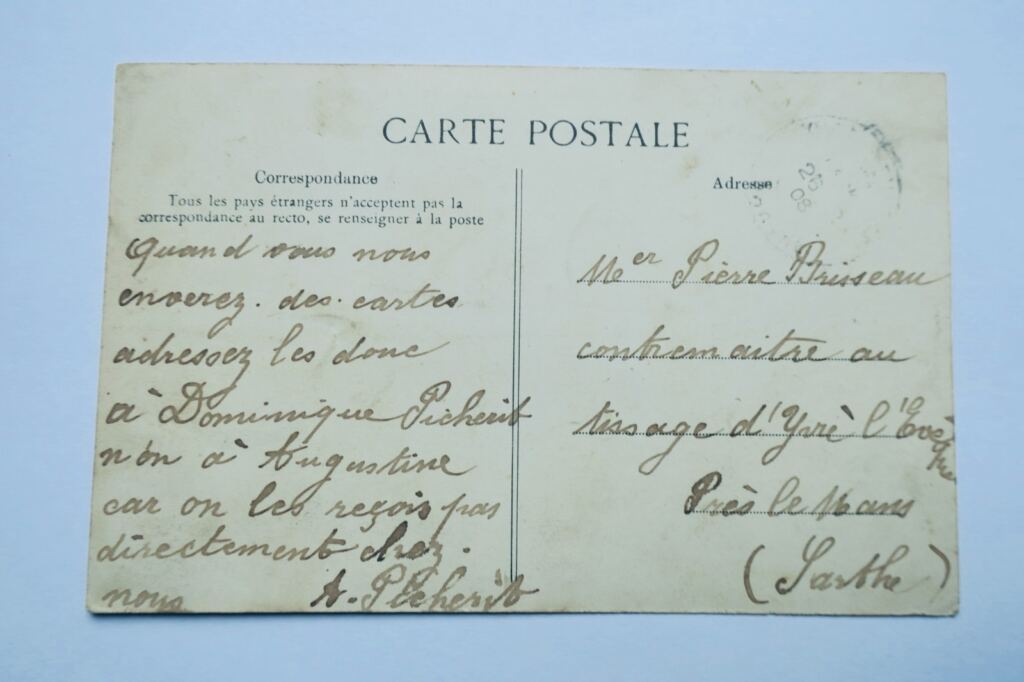 CARTE POSTALE
Correspondance
Tous les pays étrangers n'acceptent pas la
correspondance au recto, se renseigner à la poste
Quand vous nous
enverez. des. cartes
adressez les donc
à Dominique Picherit
n'on à Augustine
car on les reçois pas
directement chez.
nous A. Picherit
Adresse
25
08
Mer Pierre Brisseau
contremaitre au
tissage d'Yvrè l'Evêche
Près le Mans
(Sarthe)